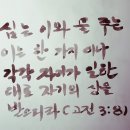 심는 이와 물 주는
이는 한 가지이나
각각 자기가 일한
대로 자기의 상을
받으리라 (고전 3:8)